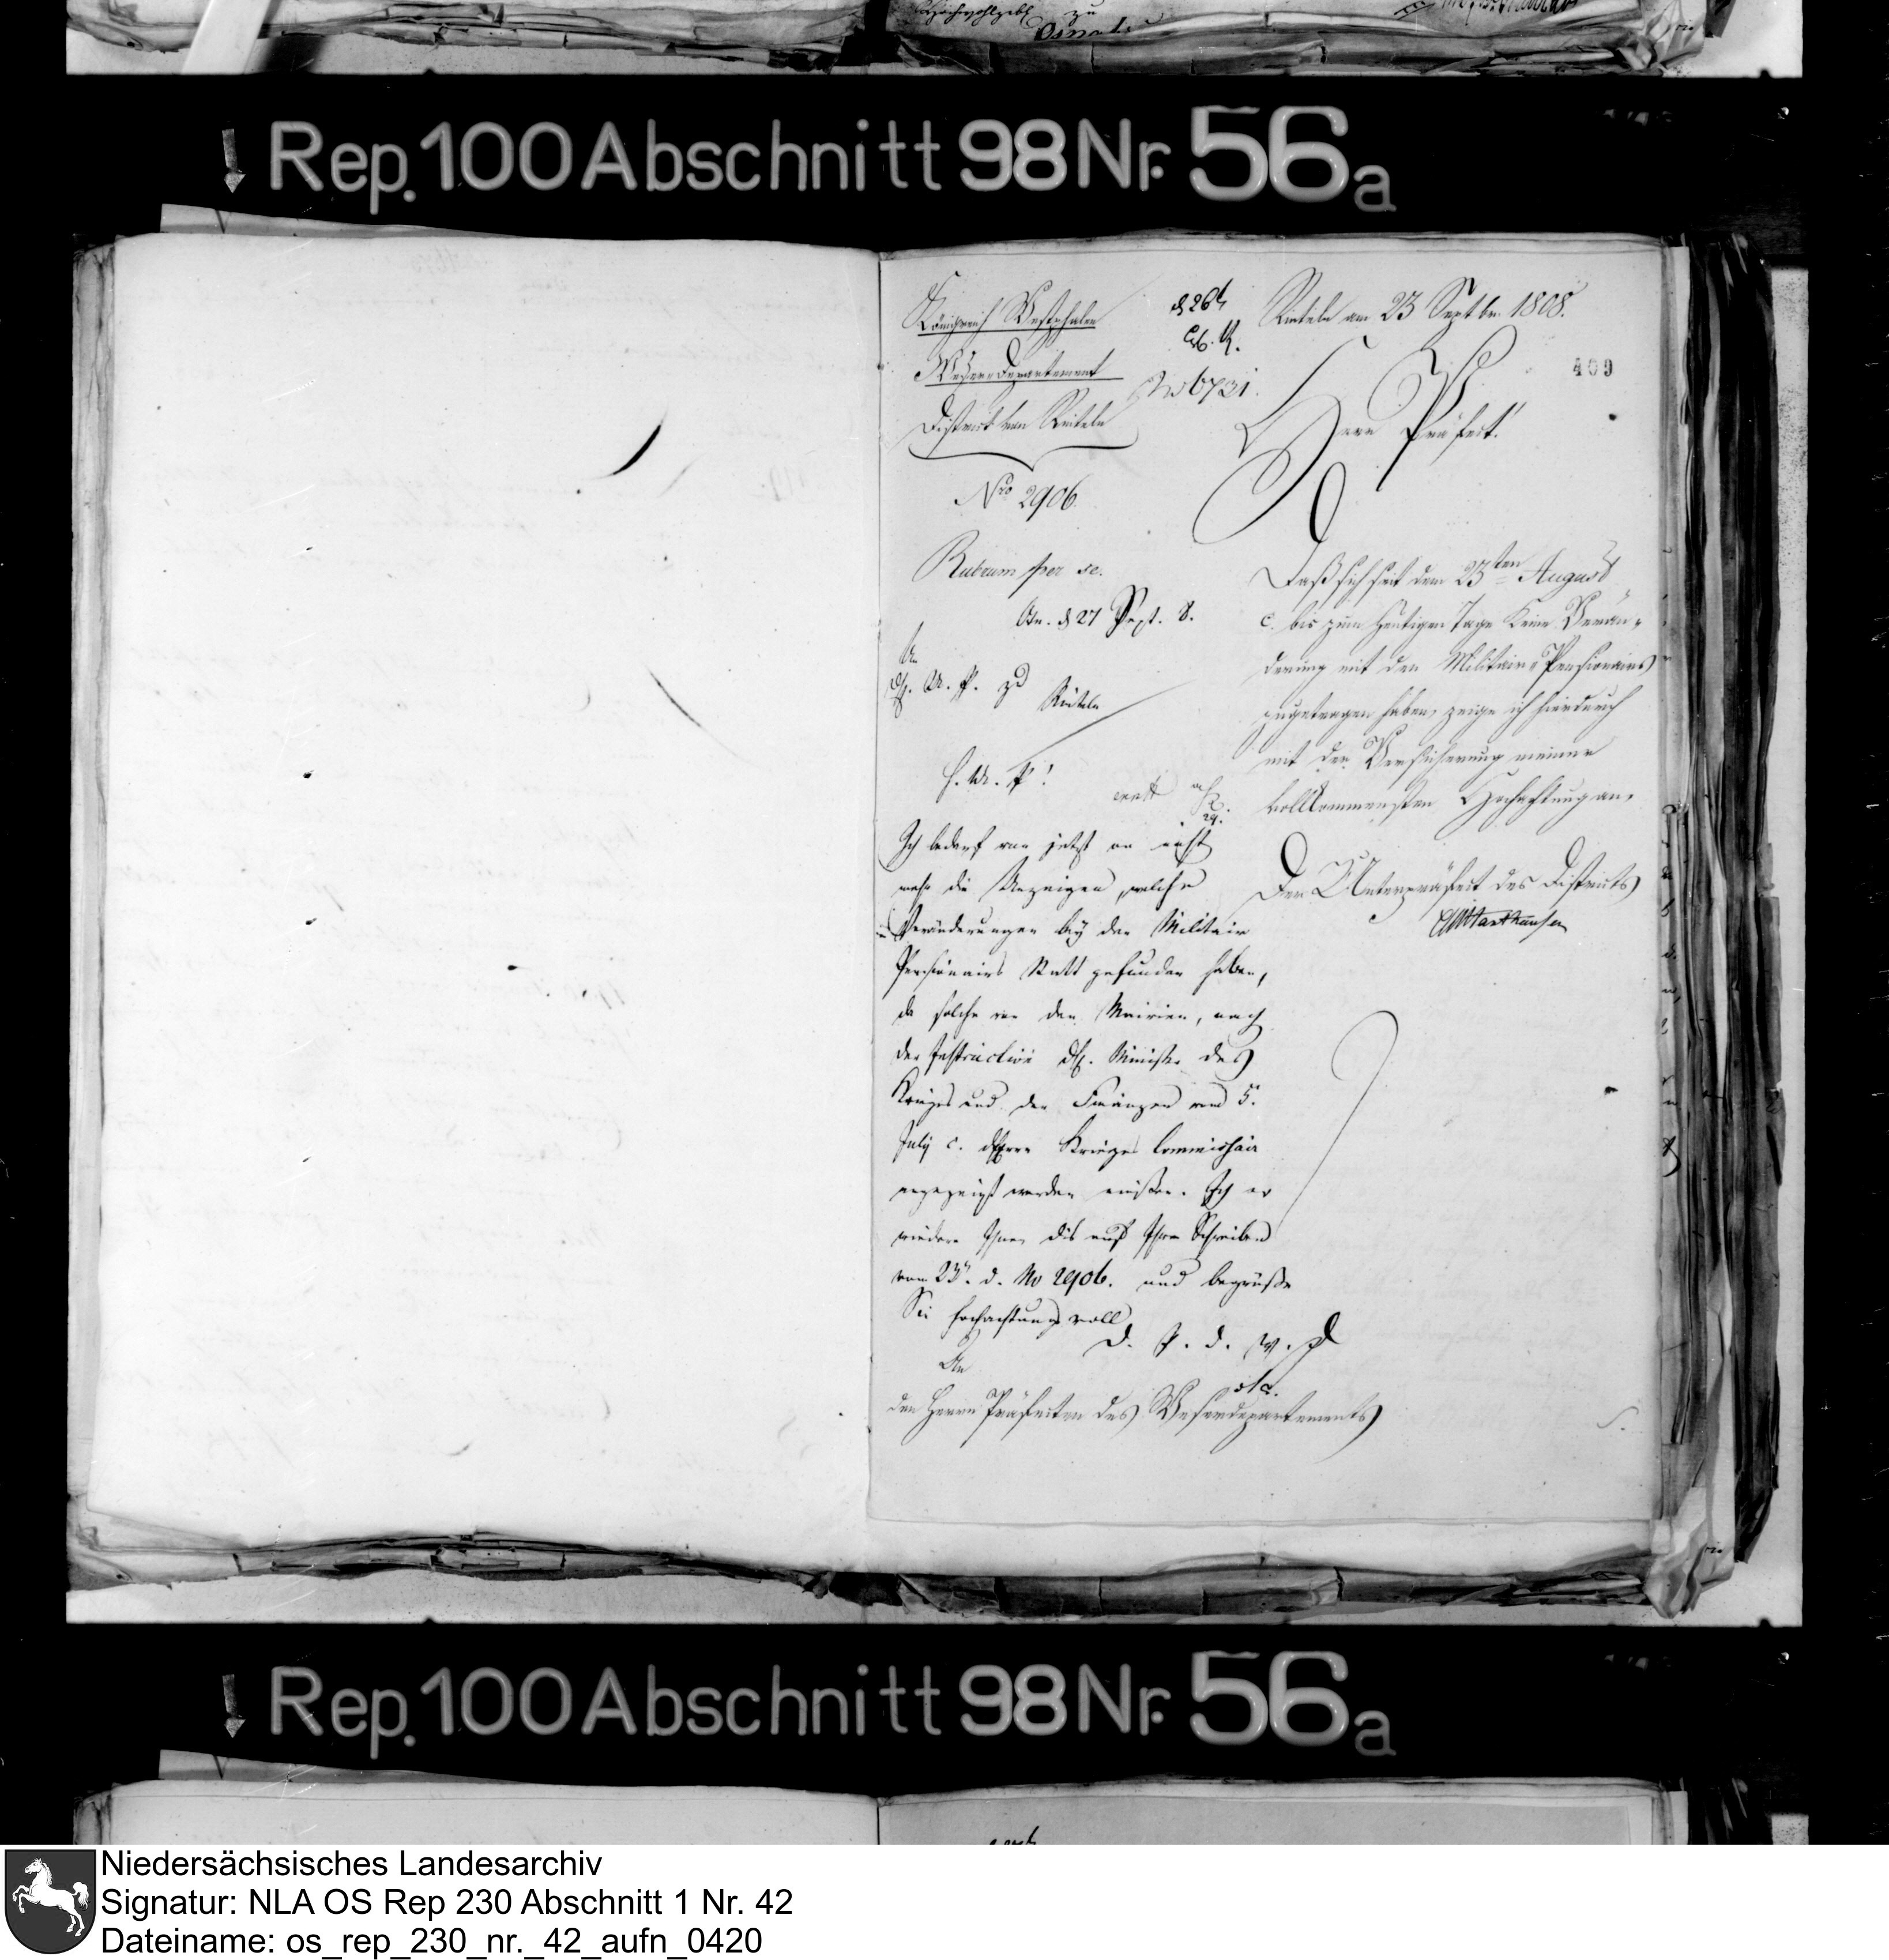 Rep. 100 Abschnitt 98 Nr. 56a
Königreich Westphalen
Weser Departement
District von Rinteln
No 2906.
No 6731.
Rinteln am 23 Septbr. 1808.
409
Herr Präfect!
Rubrum per se.
Daß sich seit dem 23ten August
c. bis zum heutigen Tage keine Verän-
derung mit den Militair-Pensionairs
zugetragen haben, zeige ich hierdurch
mit der Versicherung meiner
vollkommensten Hochachtung an.
Der Unterpräfect des Districts
Osn. d 27 Sept. 8.
An
H. U. P. zu
Rinteln
H. U. P!
Ich bedarf von jetzt an nicht
mehr die Anzeigen, welche
Veränderungen bey den Militair
Pensionairs Statt gefunden haben,
da solche von den Mairien, nach
der Instruction des Ministers des
Krieges und der Finanzen vom 5.
July c. dem Krieges Commissair
angezeigt werden müssen. Ich er
wiedere Ihnen dis auf Ihr Schreiben
vom 23. d. No 2906. und begrüße
Sie hochachtungsvoll
D. P. d. W. D
An
den Herrn Präfecten des Weserdepartements
Rep. 100 Abschnitt 98 Nr. 56a
Niedersächsisches Landesarchiv
Signatur: NLA OS Rep 230 Abschnitt 1 Nr. 42
Dateiname: os_rep_230_nr._42_aufn_0420